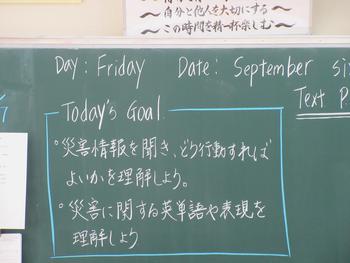 ～自分と他人を大切にする～
～この時間を精一杯楽しむ～
Day : Friday Date : September
Text
Today's Goal
・災害情報を聞き、どう行動すれば
よいかを理解しよう。
・災害に関する英単語や表現を
理解しよう